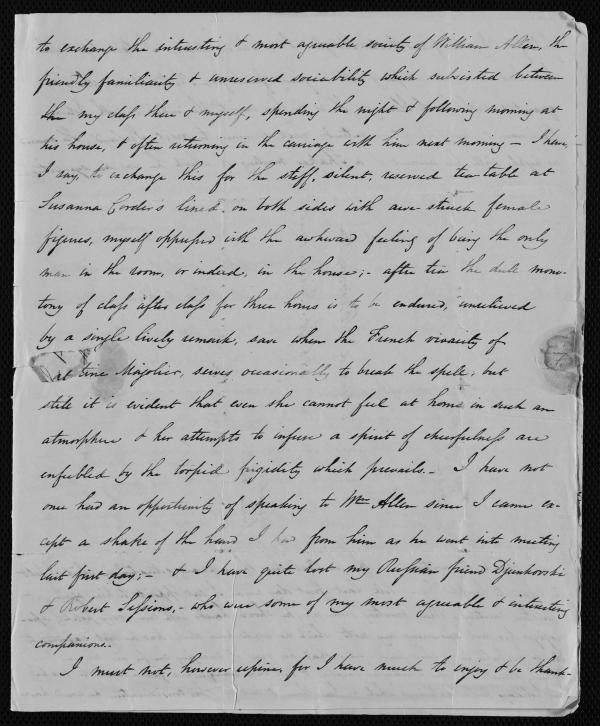 to exchange the interesting & most agreeable society of William Allen, the
friendly familiarity & unreserved sociability which subsisted between
the my class there & myself, spending the night & following morning at
his house, & often returning in the carriage with him next morning – I have,
I say, to exchange this for the stiff, silent, reserved tea table at
Susanna Corder's lined, on both sides with awe struck female
figures, myself oppressed with the awkward feeling of being the only
man in the room, or indeed, in the house;– after tea the dull mono-
tony of class after class for three hours is to be endured, unrelieved
by a single lively remark, save when the French vivacity of
Majolier, serves occasionally to break the spell, but
still it is evident that even she cannot feel at home in such an
atmosphere & her attempts to infuse a spirit of cheerfulness are
enfeebled by the torpid frigidity which prevails.– I have not
once had an opportunity of speaking to Wm Allen since I came ex-
cept a shake of the hand I had from him as he went into meeting
last first day;– & I have quite lost my Russian friend Djunkovski
& Robert Sessions,– who were some of my most agreeable & interesting
companions.
I must not, however repine, for I have much to enjoy & be thank-